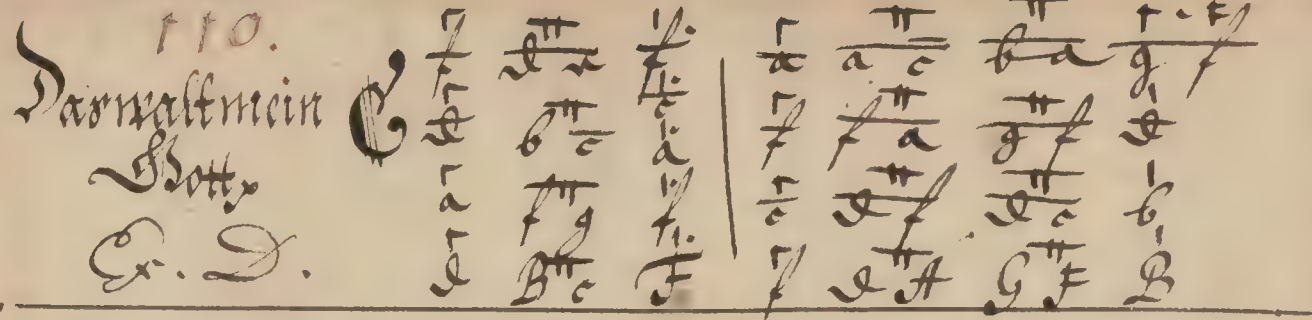 110.
Daswaltmein
Gott
Ex. D.
C
f d e f. | a a c b a g. f
d b c c a | f f a g f d
a f g f. | c d f d c b
d B c F | f d A G F B